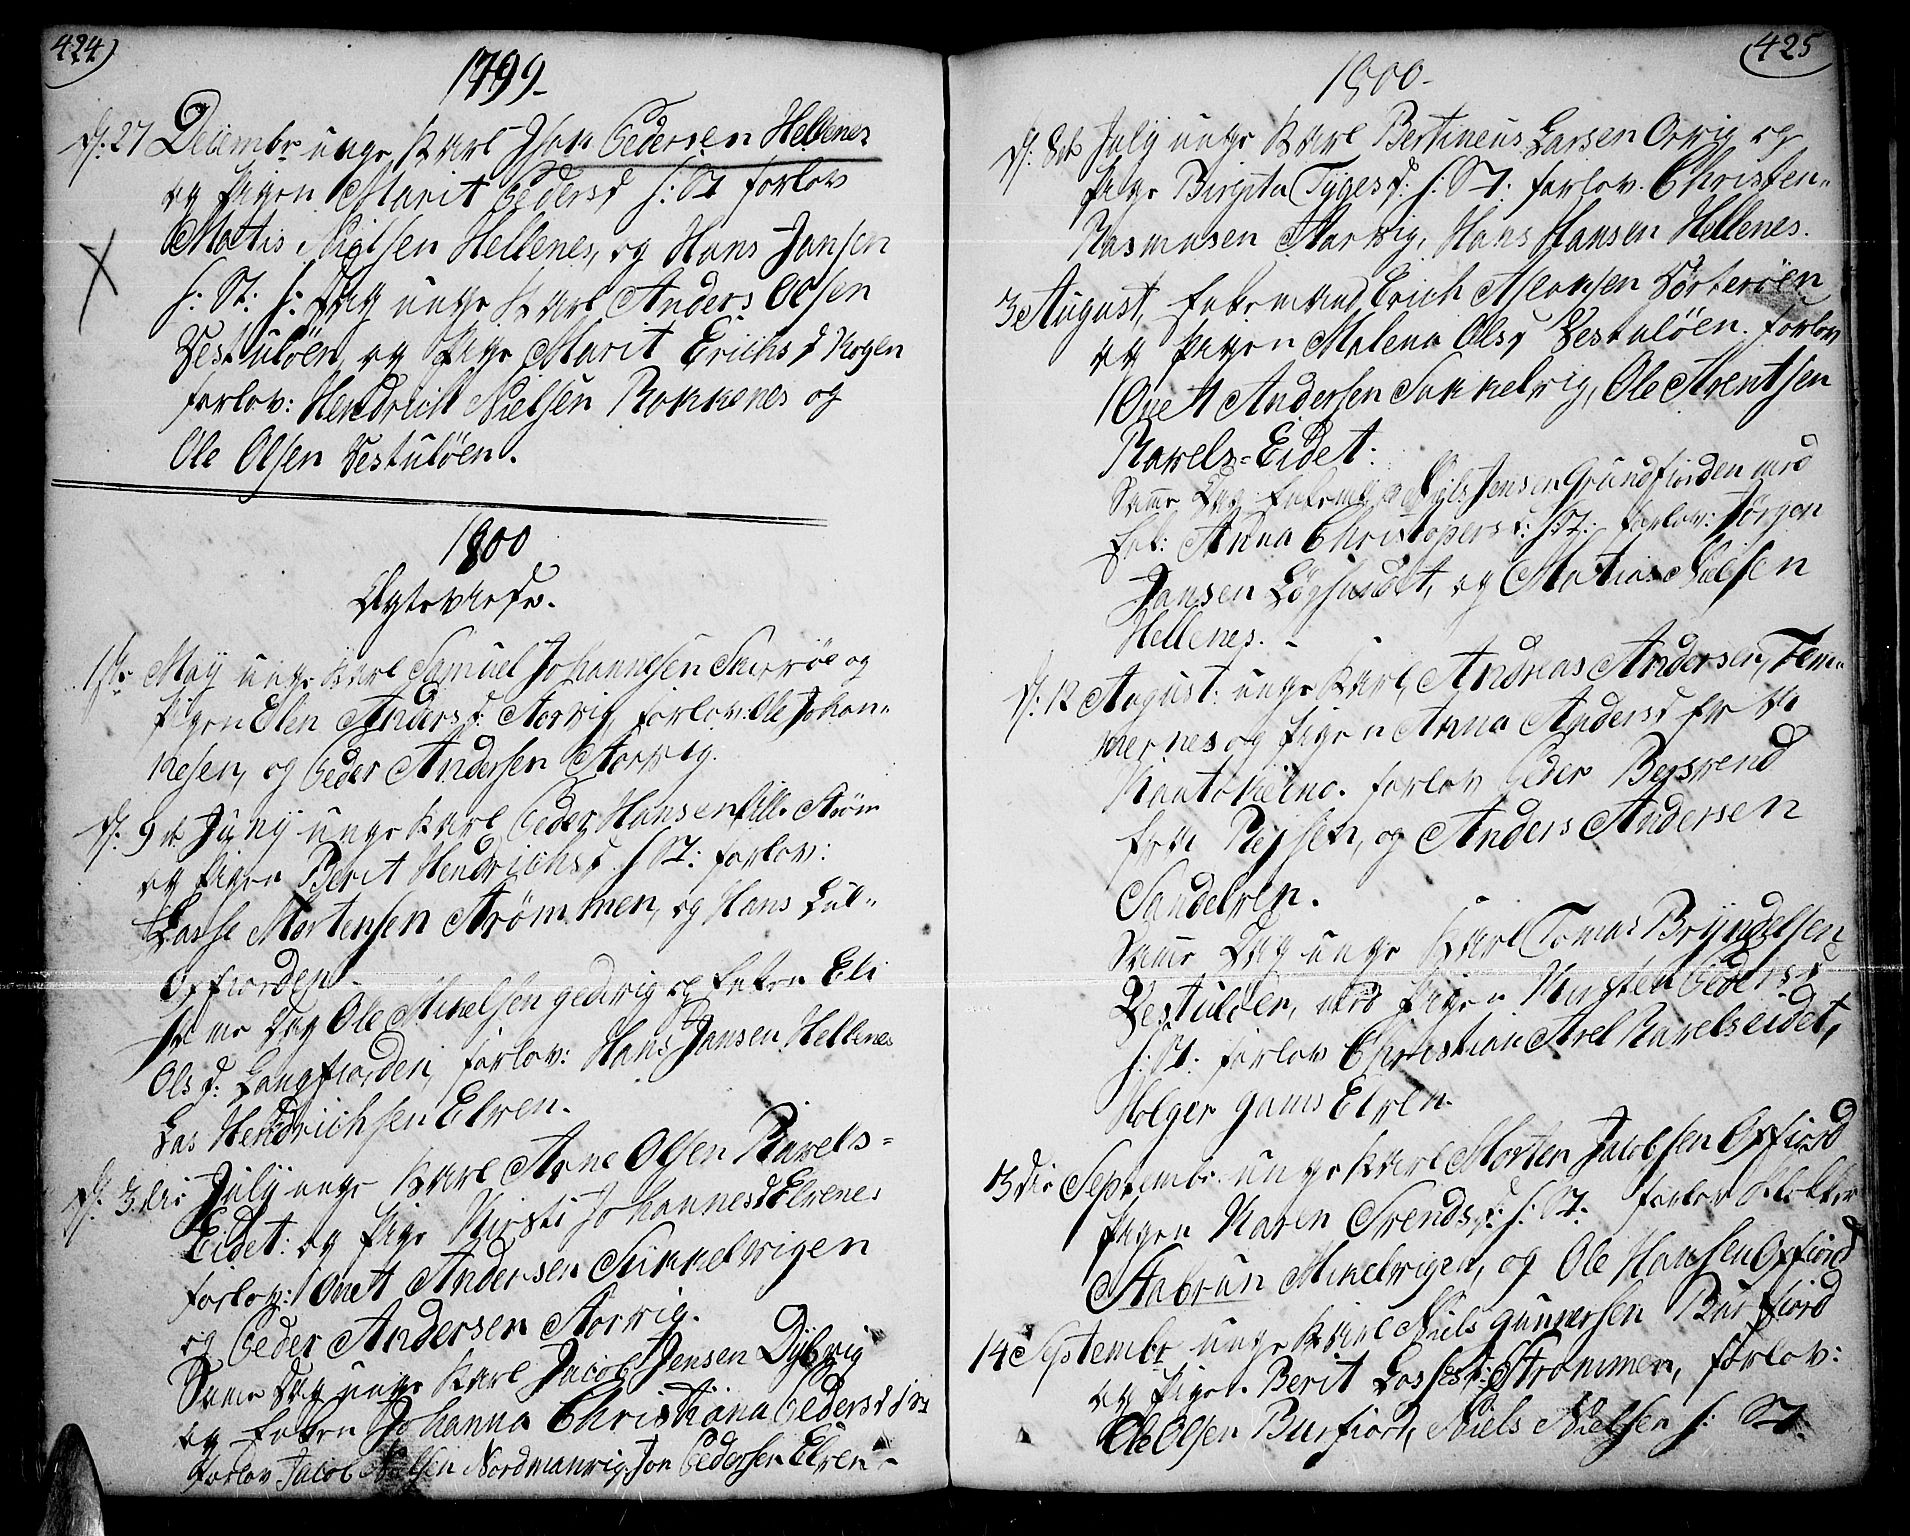 424)
1799.
d: 27 Decembr unge Karl John Peders​en Hellenes
og Pigen Marit Pedersd s: St forlov
Mattis Nielsen Hellenes, og Hans Jansen
s: St: s: Dag unge Karl Anders Olsen
Vestuløen, og Pige Marit Erichsd Kogen
forlov: Hendrich Nielsen Rokkenes og
Ole Olsen Vestuløen.
1800
Ægteviede.
1ste May unge Karl Samuel Johannesen Skorrøe og
Pigen Elen Andersd: Storvig, forlov: Ole Johan„
nesen, og Peder Andersen Storvig.
d: 9de Juny unge Karl Peder Hansen Lille Strøm
og Pigen Berit Hendrichsd s St: forlov:
Lasse Mortensen Strømmen, og Hans Lul„
Oxfiorden
samme Dag Ole Mikelsen gedvig og Enken Eli
Olsd: Langfiorden, forlov: Hans Jansen Hellenes
Las Hendrichsen Elven.
d: 3die July unge Karl Arne Olsen Kavels=
Eidet: og Pige Kirsti Johannesd Elvenes
forlov: Onet Andersen Sukkelvigen
og Peder Andersen Storvig.
Same Dag unge Karl Jacob Jensen Dybvig
og Enken Johanna Christiana Pedersd s St
forlov Jacob Nielsen Nordmanvig, Jon Pedersen Elven
425
1800.
d: 8de July unge Karl Bertineus Larsen Orvig og
Pige Birgita Tygesd: s: St: forlov. Christen„
Rasmusen Storvig, Hans Hansen Hellenes.
3 August, Enkemand Erich Aslaksen Vorterøen
og Pigen Malena Olsd Vestuløen. forlov
Onet Andersen Sukkelvig, Ole Arentsen
Kavels=Eidet:
Same Dag: Enkemand Nils Jensen Grundfiorden med
Enk: Anna Christopersd: s: St: forlov: Jørgen
Jansen Løgsundet, og Matias Nielsen
Hellenes. -
d: 12 August: unge Karl, Andreas Andersen, Tem„
mernes og Pigen Anna Andersd fra
Koutokeino. forlov Peder Bersvend
fra Rejsen, og Anders Andersen
Sandelven.
Same Dag unge Karl Tomas Bryndelsen
Vestuløen, med Pigen Kirsten Pedersd
s: St: forlov Christian Axel Kavelseidet,
Holger gams Elven.
13die Septembr. unge Karl Morten Jacobsen Oxfiord
Pigen Karen Svendsd: s: St. forlov Klokker
Stabrun Mikelvigen, og Ole Hansen Oxfiord
14 Septembr unge Karl Niels gunnersen Burfiord
og Pigen. Berit Lassesd: Strømmen, forlov:
Ole Olsen Burfiord, Niels Nielsen s: St.